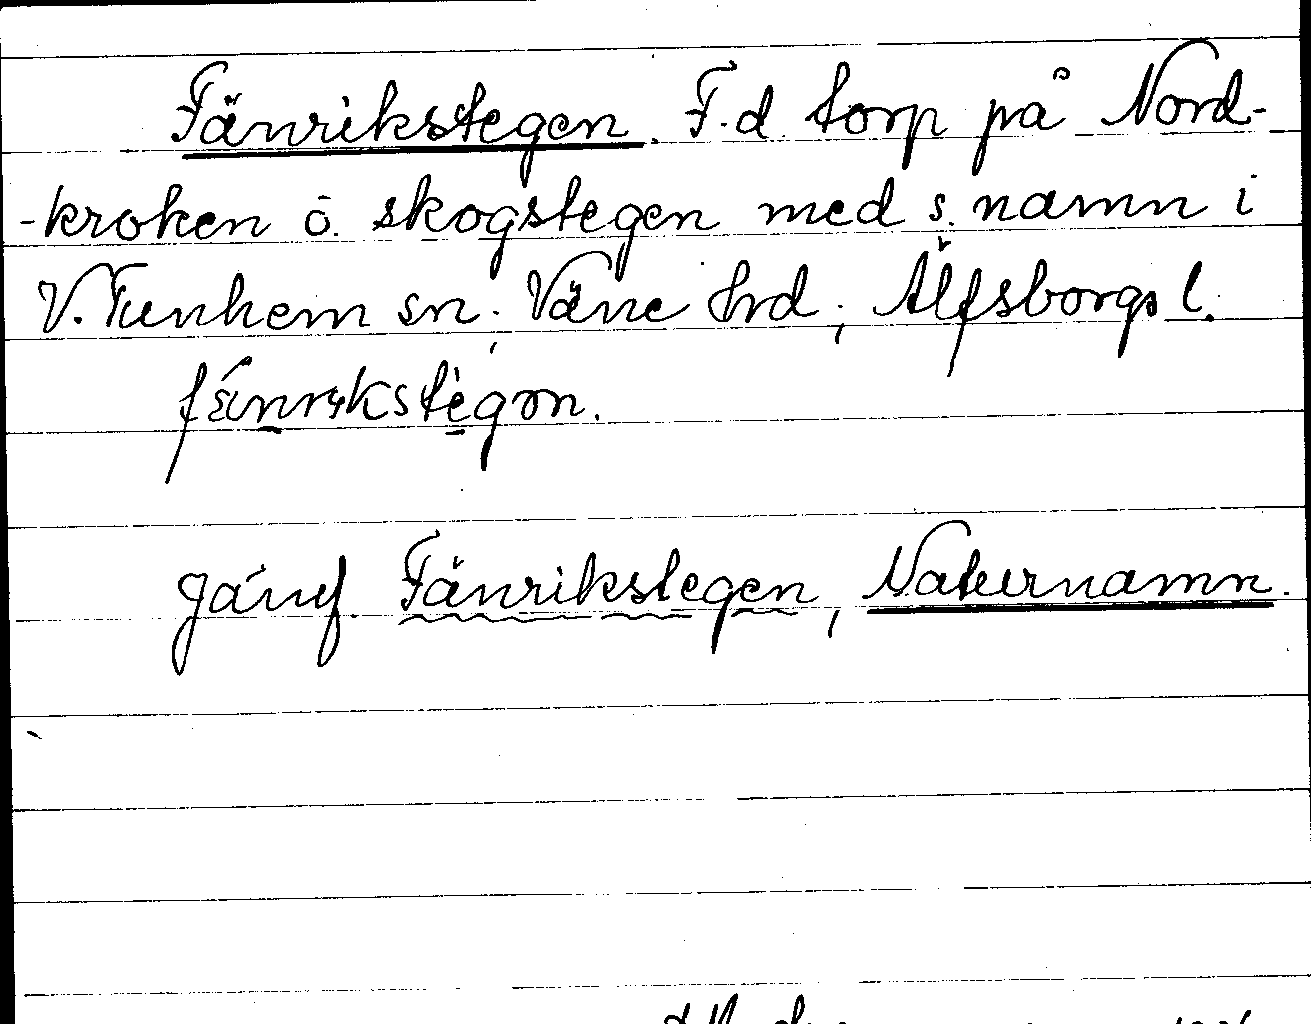 Fänrikstegen. F.d. torp på Nord-
-kroken ö. skogstegen med s. namn i
V. Tunhem sn; Väne hrd; Älfsborgs l.
Jämf. Fänrikstegen, Naturnamn.